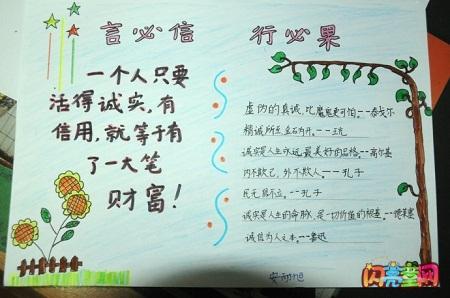 言必信 行必果
一个人只要
活得诚实,有
信用,就等于有
了一大笔
财富!
虚伪的真诚,比魔鬼更可怕--泰戈尔
精诚所至,金石为开。--王充
诚实是人生永远最美好的品格。--高尔基
内不欺己,外不欺人。--孔子
民无信不立。--孔子
诚实是人生的命脉,是一切价值的根基。--德莱塞
诚信为人之本。--鲁迅
闪亮堂网